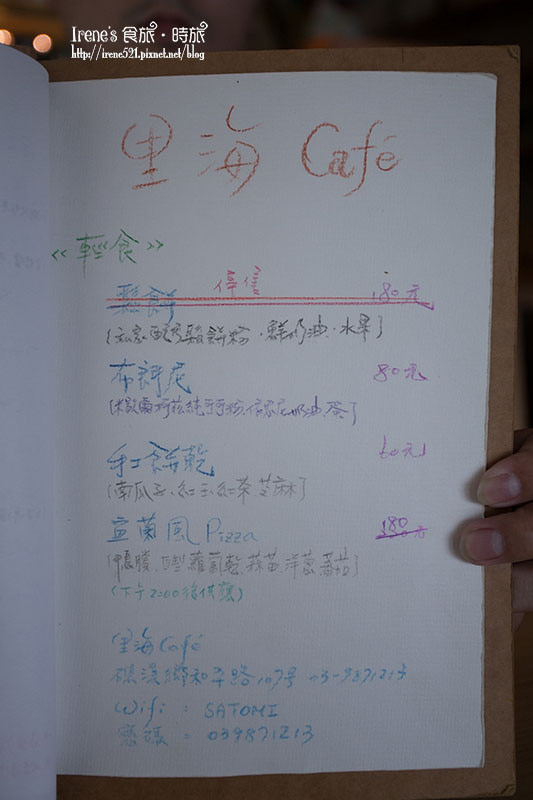 Irene's 食旅·時旅
http://irene521.pixnet.net/blog
里海 Café
《輕食》
停售
鬆餅 180元
(私家配方鬆餅粉·鮮奶油·水果)
布朗尼 80元
手工餅乾 60元
(南瓜子、紅玉紅茶、芝麻)
宜蘭風 Pizza 180元
(鴨賞、蘿蔔乾、蒜苗、洋蔥、蕃茄)
(下午2:00後供應)
里海Café
礁溪鄉和平路107號 03-9871213
Wifi : SATOMI
密碼 : 039871213